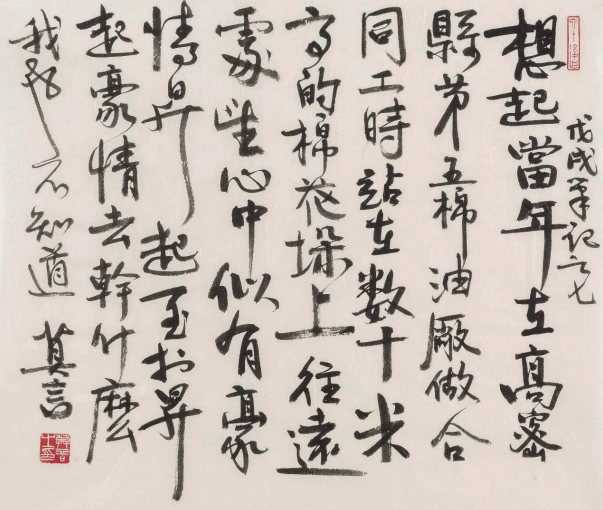 戊戌筆记之七
想起當年在高密
縣第五棉油廠做合
同工時站在数十米
高的棉花垛上往遠
處望心中似有豪
情昇起至於昇
起豪情去幹什麼
我却不知道 莫言